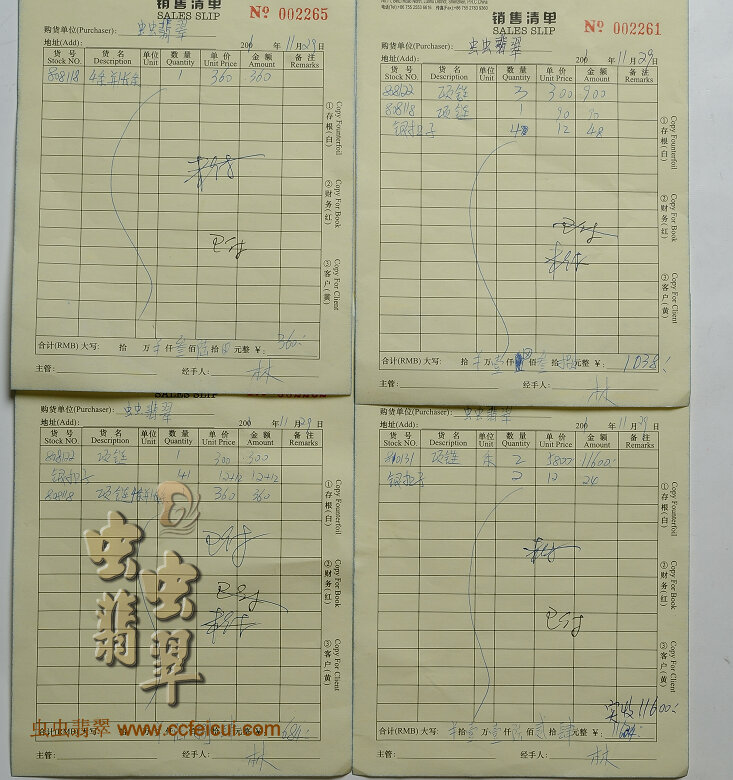 销售清单
SALES SLIP
№ 002265
购货单位(Purchaser): 虫虫翡翠
地址(Add): 200 年 11月29日
货号 货名 单位 数量 单价 金额 备注
Stock NO. Description Unit Quantity Unit Price Amount Remarks
808118 1 360 360
未付
已付
合计(RMB) 大写: 拾 万 仟叁佰陆拾 元整 ¥: 360
主管: 经手人: 林
①存根(白) Copy Founterfoil
②财务(红) Copy For Book
③客户(黄) Copy For Client
销售清单
SALES SLIP
№ 002261
购货单位(Purchaser): 虫虫翡翠
地址(Add): 200 年 11月29日
货号 货名 单位 数量 单价 金额 备注
Stock NO. Description Unit Quantity Unit Price Amount Remarks
88122 项链 3 300 900
808118 项链 1 90 90
银扣子 4 12 48
已付
未付
合计(RMB) 大写: 拾 万壹仟 佰叁拾 元整 ¥: 1038
主管: 经手人: 林
①存根(白) Copy Founterfoil
②财务(红) Copy For Book
③客户(黄) Copy For Client
SALES SLIP
购货单位(Purchaser): 虫虫翡翠
地址(Add): 200 年 11月29日
货号 货名 单位 数量 单价 金额 备注
Stock NO. Description Unit Quantity Unit Price Amount Remarks
88122 项链 1 300 300
银扣子 12+12 12+12
808118 项链 360 360
已付
已付
未付
合计(RMB) 大写: 684
主管: 经手人: 林
①存根(白) Copy Founterfoil
②财务(红) Copy For Book
③客户(黄) Copy For Client
虫虫翡翠
虫虫翡翠 www.ccfeicui.com
购货单位(Purchaser): 虫虫翡翠
地址(Add): 200 年 11月29日
货号 货名 单位 数量 单价 金额 备注
Stock NO. Description Unit Quantity Unit Price Amount Remarks
项链 条 2 5800 11600
银扣子 2 12 24
未付
已付
实收11600
合计(RMB) 大写: 拾壹万壹仟陆佰贰拾肆元整 ¥:
主管: 经手人: 林
①存根(白) Copy Founterfoil
②财务(红) Copy For Book
③客户(黄) Copy For Client